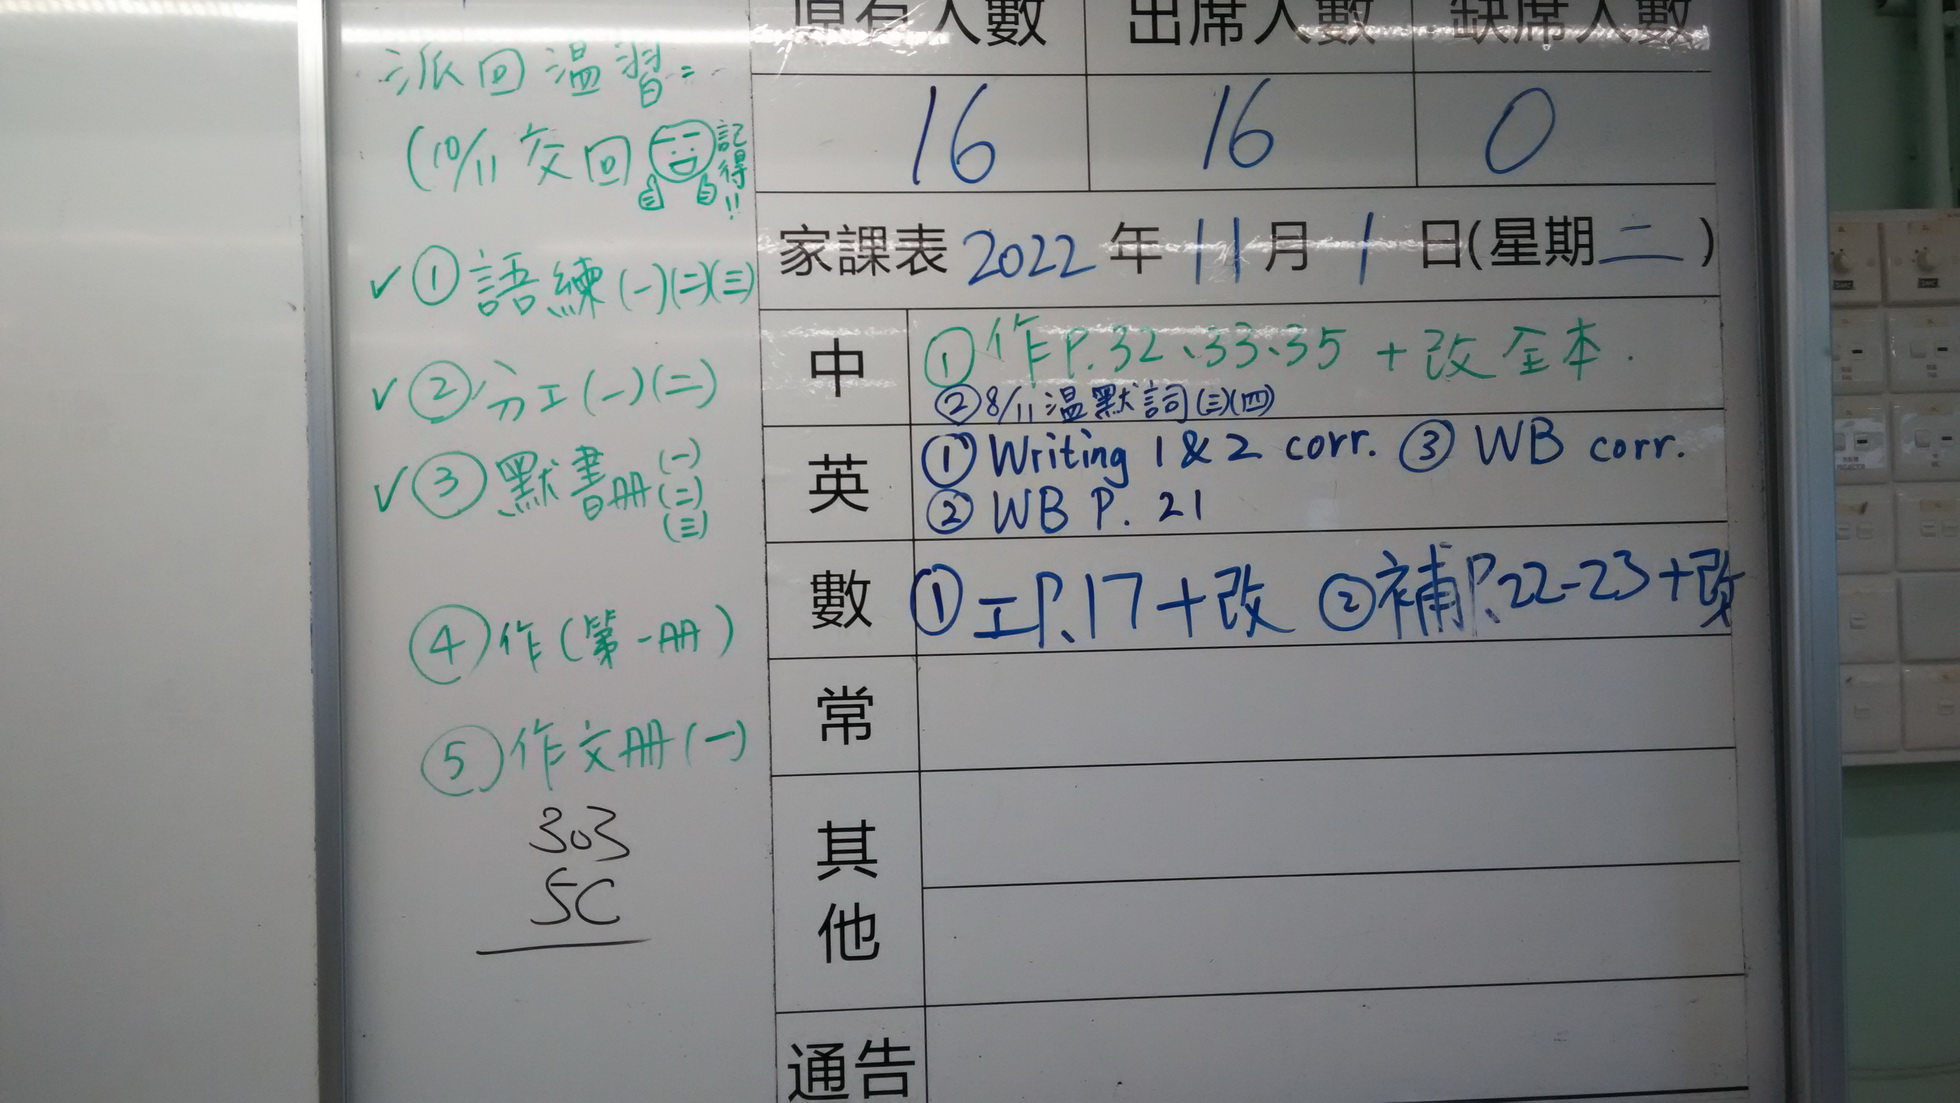 派回溫習:
(10/11 交回 記得!!
✓ ① 語練(一)(二)(三)
✓ ② 分工(一)(二)
✓ ③ 默書冊(一)(二)(三)
④ 作(第一冊)
⑤ 作文冊(一)
303
5C
原有人數 出席人數 缺席人數
16 16 0
家課表 2022 年 11 月 1 日(星期二)
中 ① 作P.32、33、35 + 改全本.
② 8/11 溫默詞(三)(四)
英 ① Writing 1 & 2 corr. ③ WB corr.
② WB P. 21
數 ① 工P.17+改 ② 補P.22-23+改
常
其他
通告